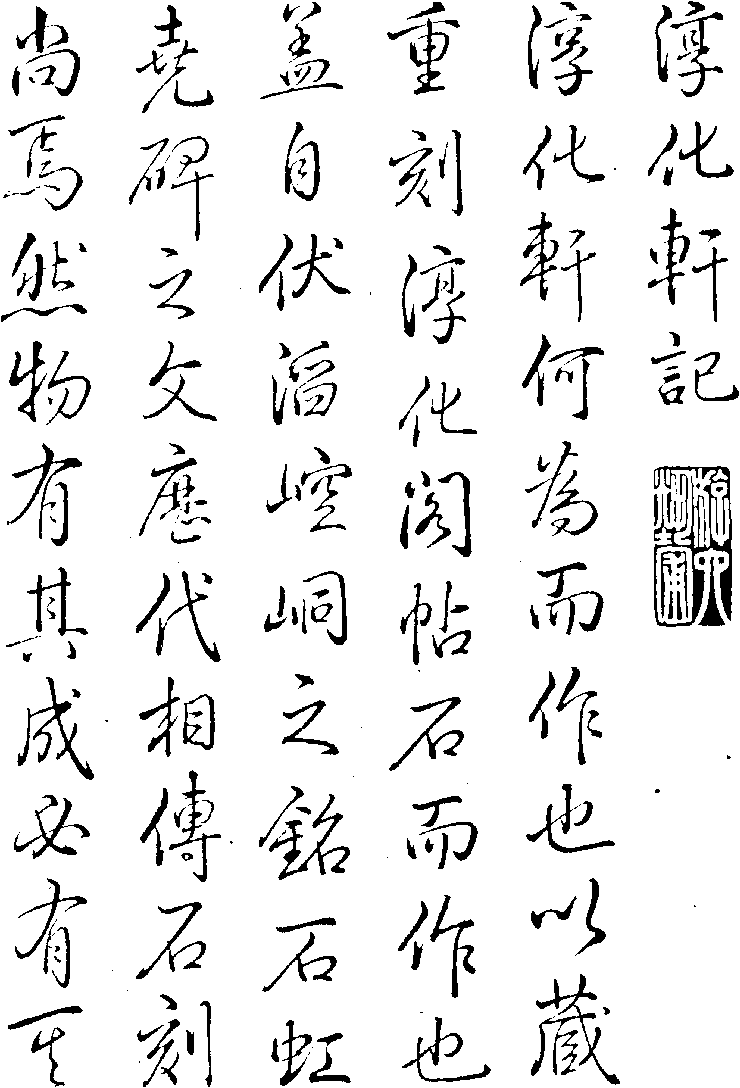 淳化軒記
淳化軒何為而作也以藏
重刻淳化閣帖石而作也
蓋自伏滔崆峒之銘石虹
堯碑之文歷代相傳石刻
尚焉然物有其成必有其